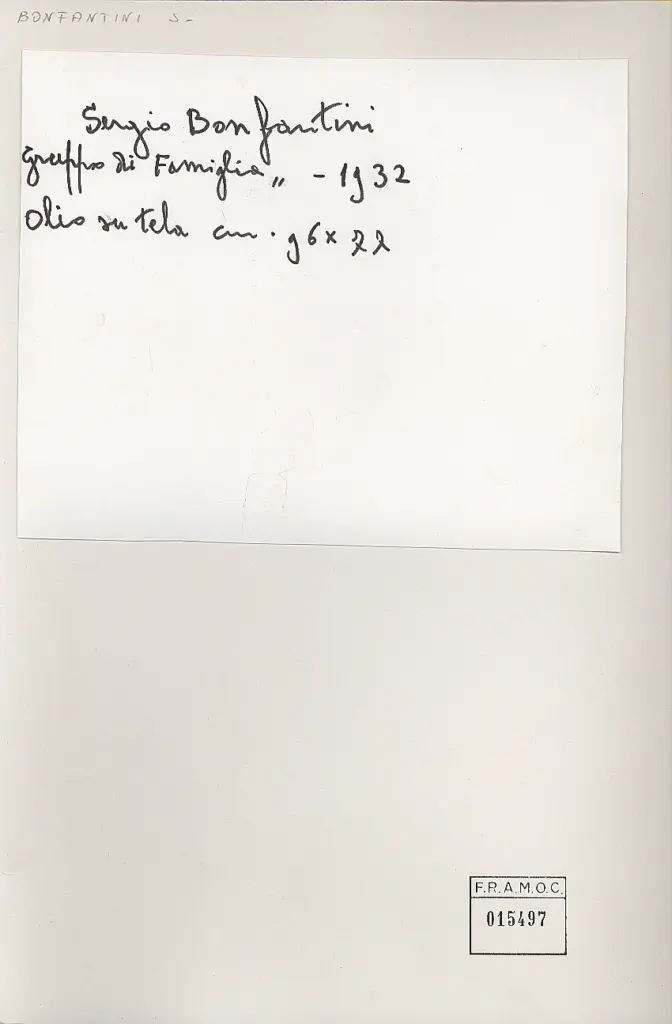 BONFANTINI S-
Sergio Bonfantini
gruppo di Famiglia„ - 1932
Olio su tela cm. 96x72
F.R.A.M.O.C.
015497